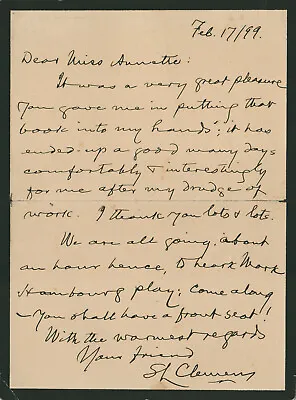 Feb. 17/99.
Dear Miss Annette:
It was a very great pleasure
you gave me in putting that
book into my hands; it has
ended up a good many days
comfortably & interestingly
for me after my drudge of
work. I thank you lots & lots.
We are all going, about
an hour hence, to hear Mark
Hambourg play: come along
—you shall have a front seat!
With the warmest regards
Your friend
SL Clemens